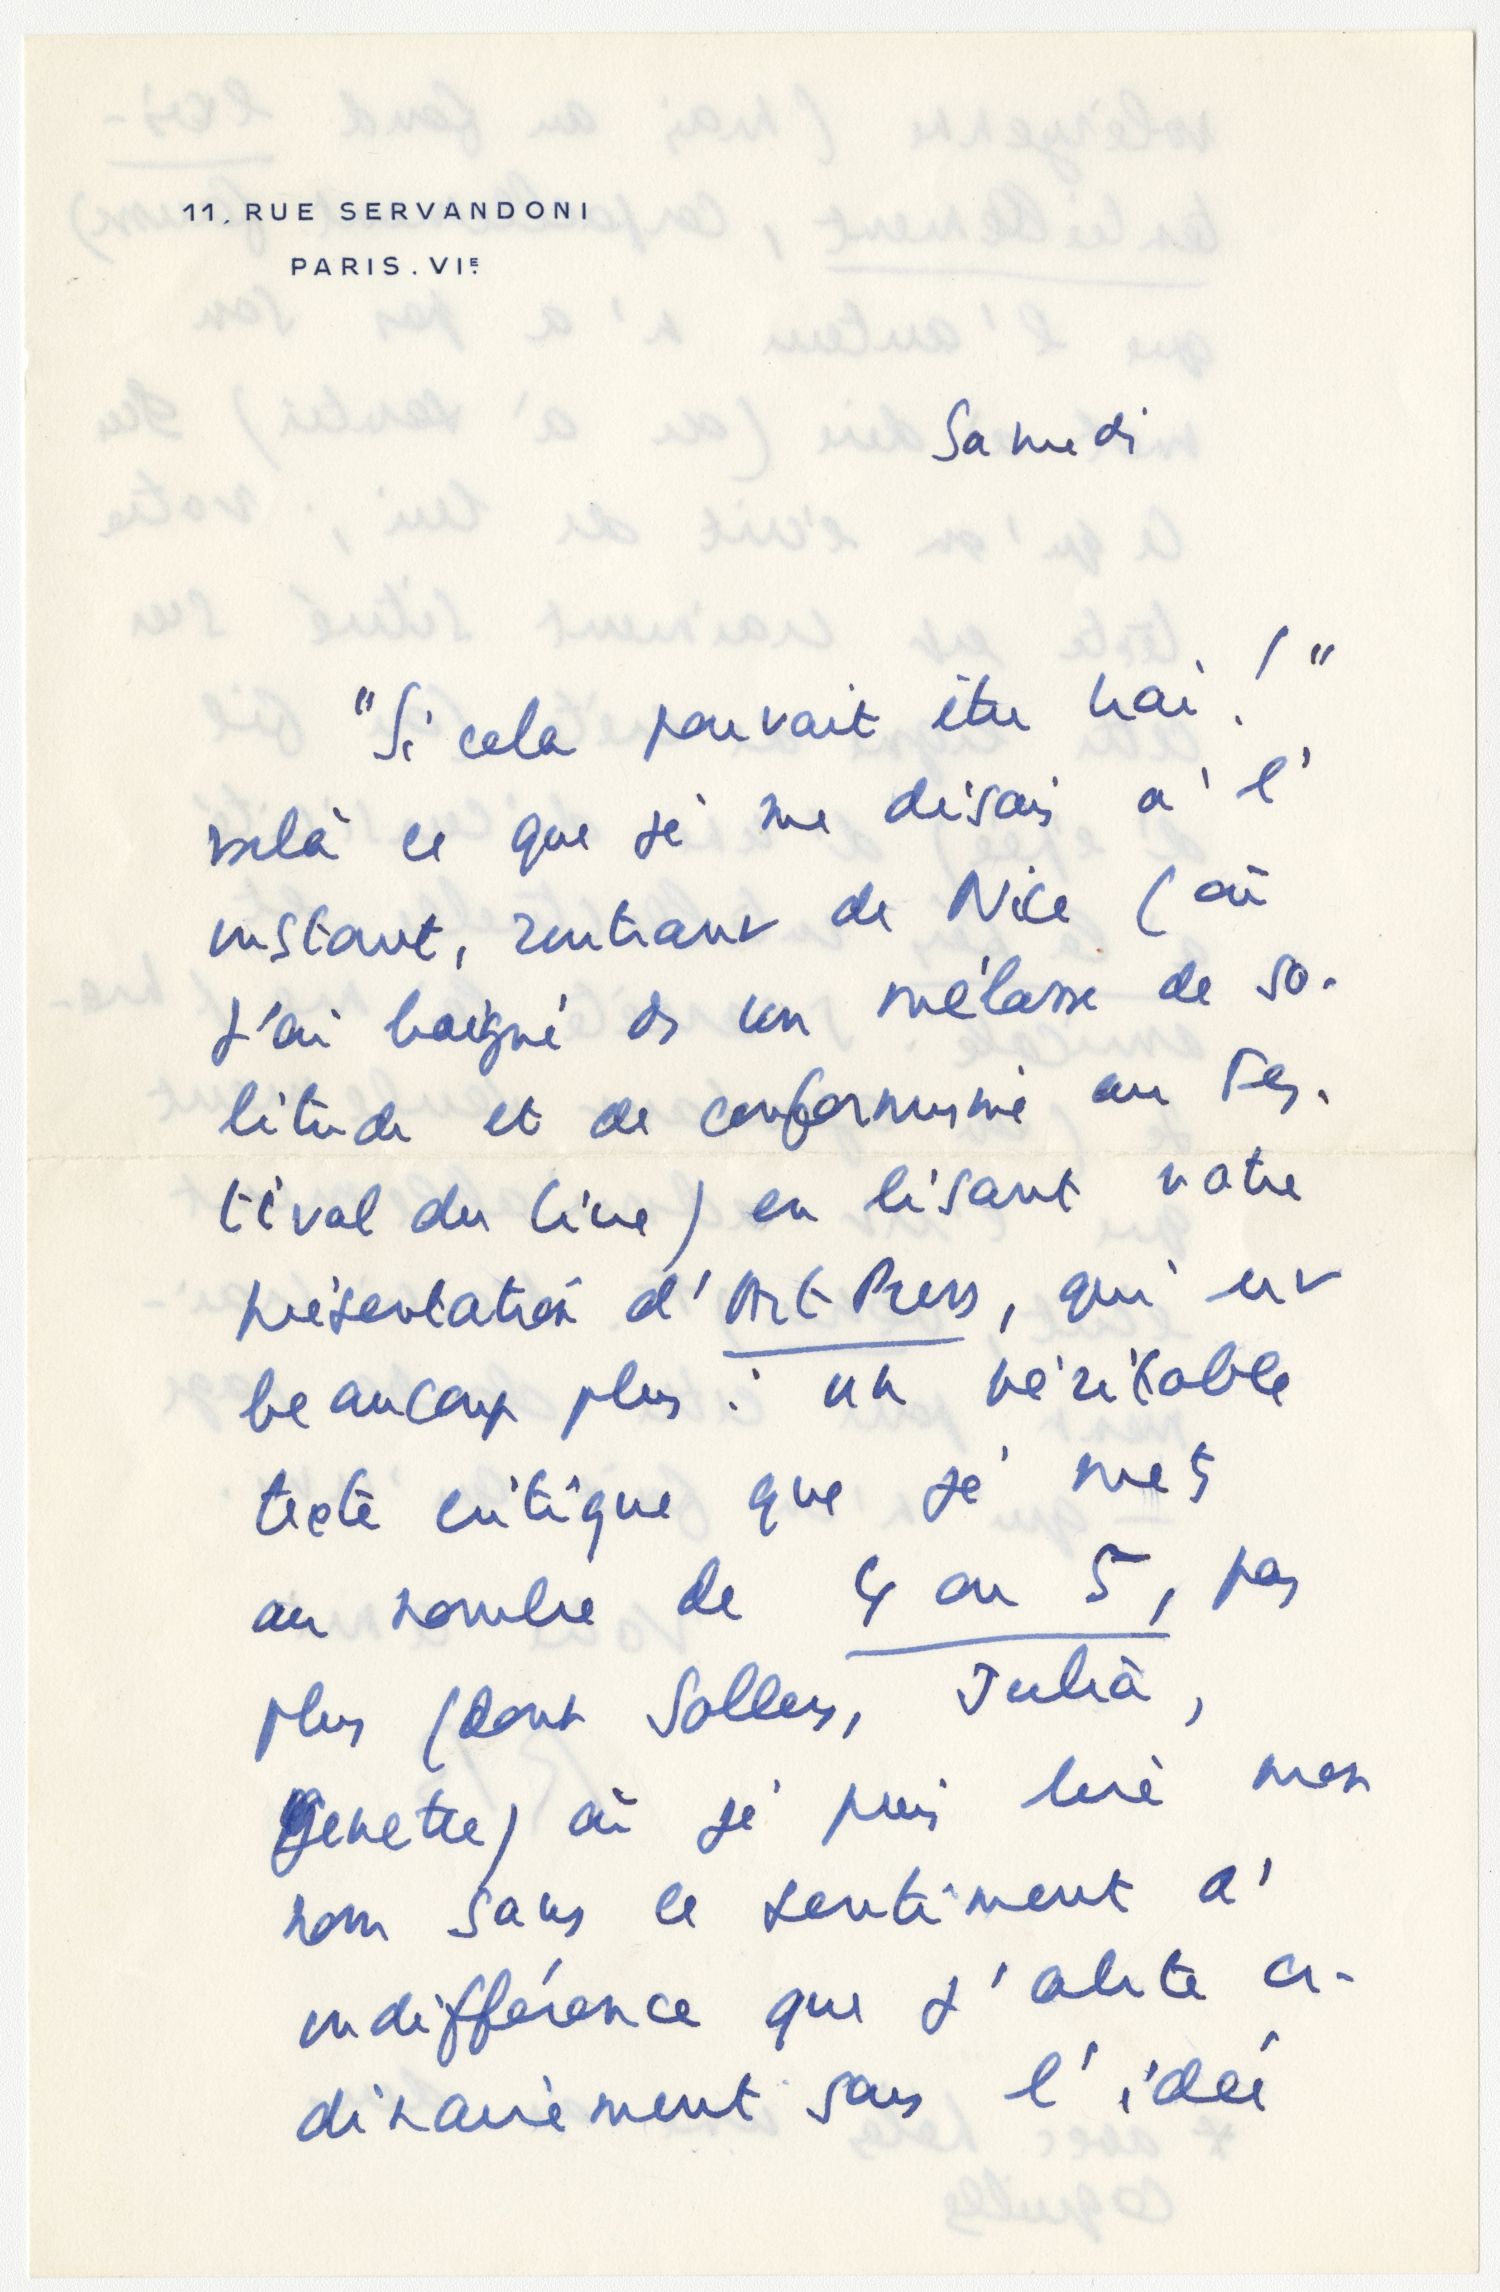 11, RUE SERVANDONI
PARIS. VIE.
Samedi
"Si cela pouvait être vrai!"
voilà ce que je me disais à l'
instant, rentrant de Nice (où
j'ai baigné ds un mélasse de so-
litude et de conformisme au Fes-
tival du livre) en lisant votre
présentation d'Art Press, qui est
beaucoup plus : un véritable
texte critique que je mets
au nombre de 4 ou 5, pas
plus (dont Sollers, Julia,
Genette) où je puis lire mon
nom sans le sentiment d'
indifférence que j'abrite or-
dinairement sous l'idée